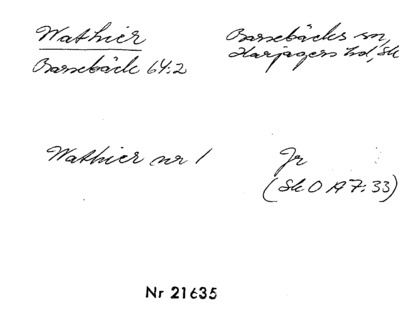 Wathier
Barsebäck 64:2
Barsebäcks sn,
Harjagers hd, Sk
Wathier nr 1
Jr
(Sk O A7:33)
Nr 21635